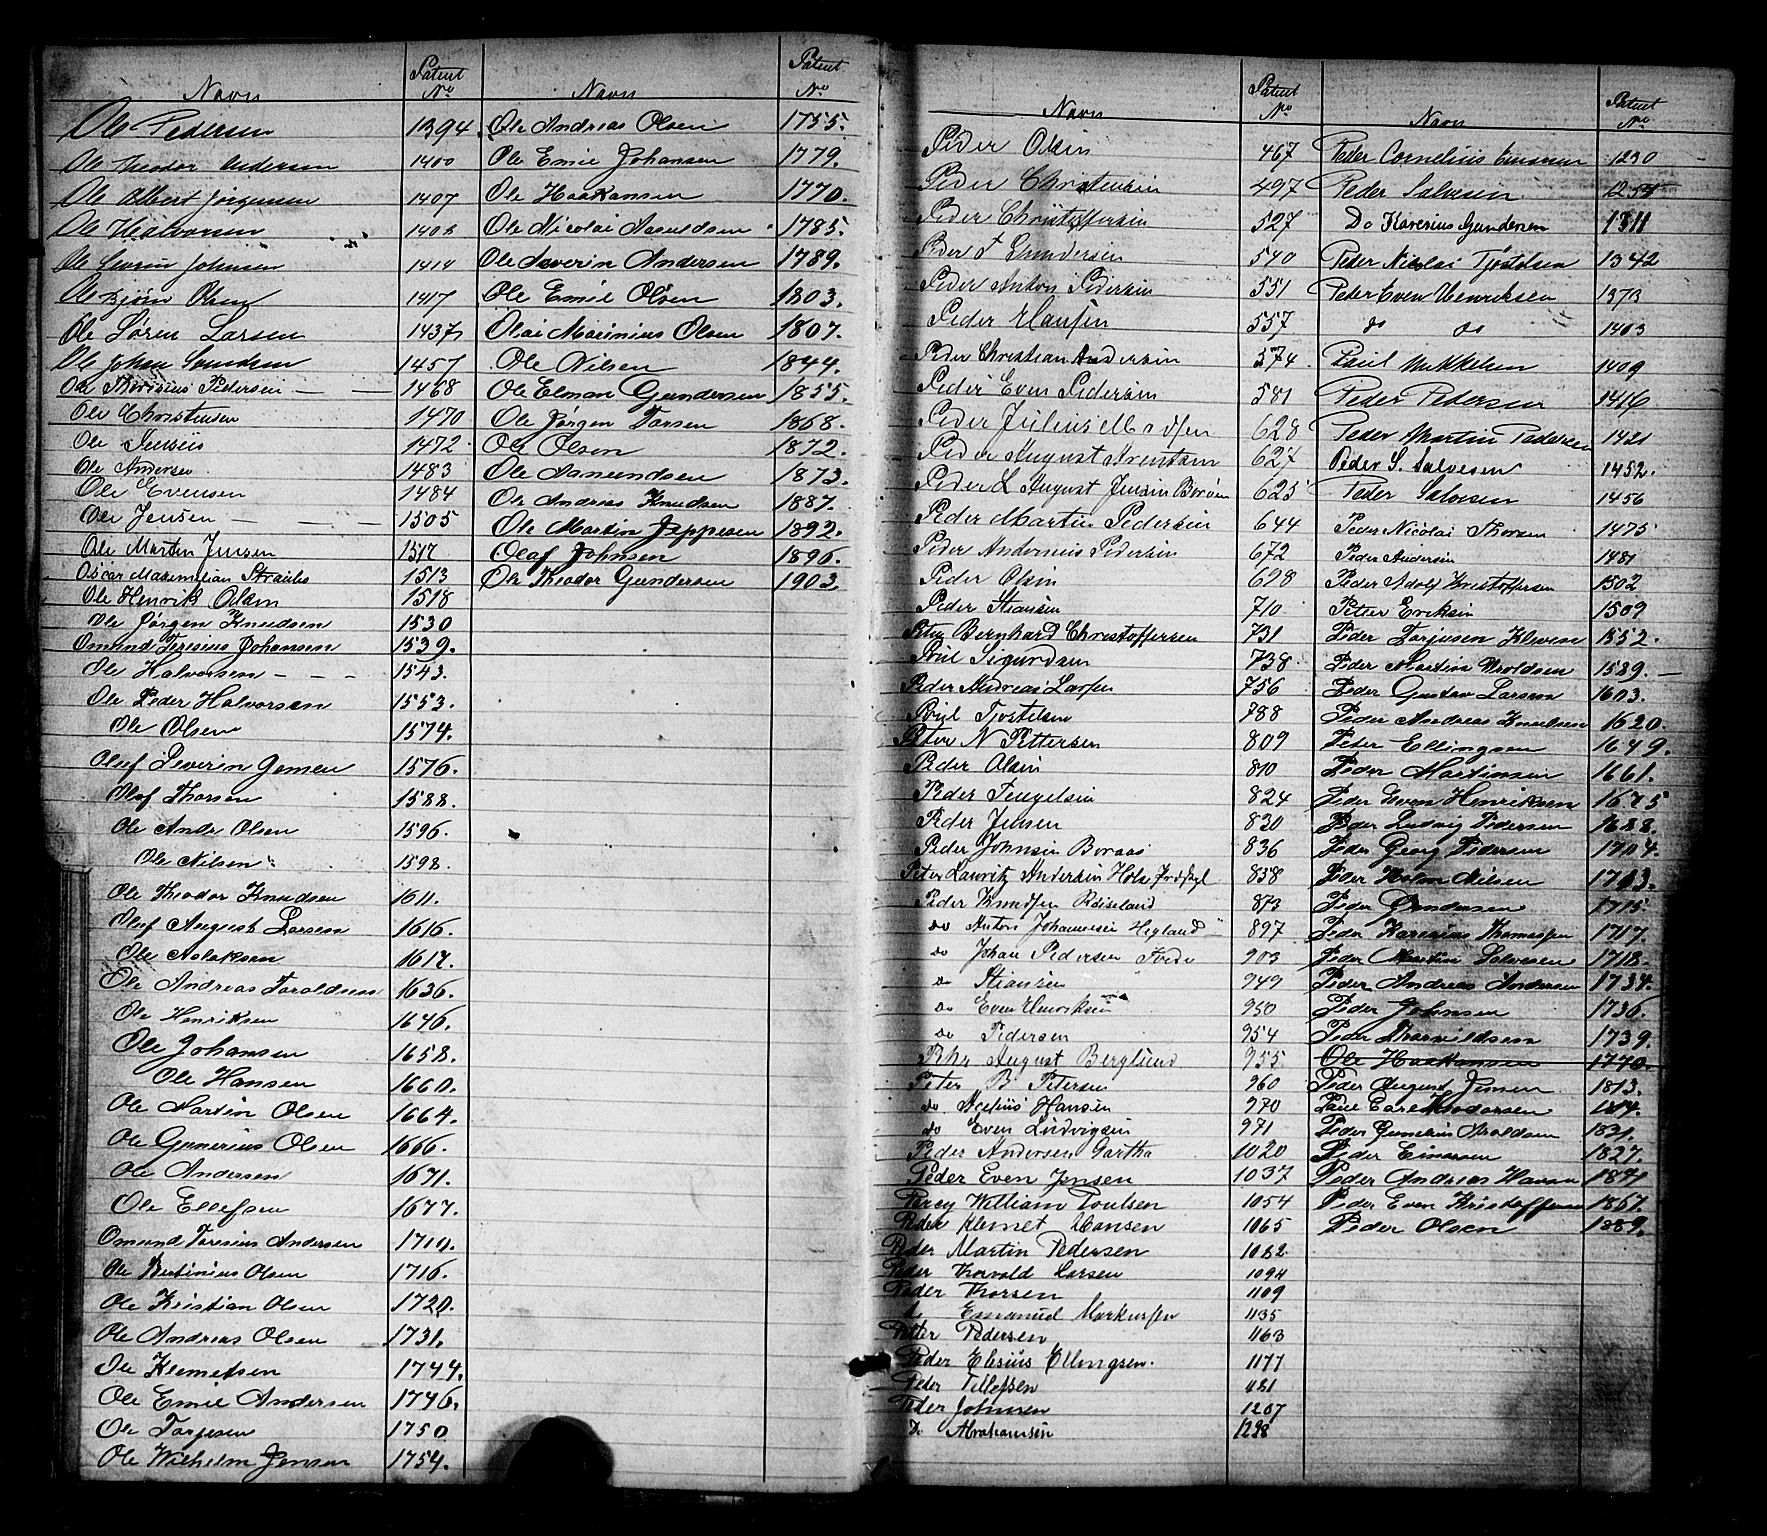 Navn Patent No
Ole Pedersen 1394.
Ole Theodor Andersen 1400
Ole Albert Jörgensen 1407
Ole Halvorsen 1408
Ole Severin Johnsen 1414
Ole Bjørn Olsen 1417
Ole Sören Larsen 1437
Ole Johan Knudsen 1457
Ole Pedersen 1468
Ole Christensen 1470
Ole 1472.
Ole Andersen 1483
Ole Evensen 1484
Ole Jensen 1505
Ole Martin Jensen 1517
Oscar Maximilian 1513
Ole Henrik Olsen 1518
Ole Jørgen Knudsen 1530
Omund Teresius Johansen 1539.
Ole Halvorsen 1543.
Ole Peder Halvorsen 1553.
Ole Olsen 1574.
Oluf Severin Jensen 1576.
Olaf Thorsen 1588.
Ole Andr. Olsen 1596.
Ole Nilsen 1598.
Ole Theodor Knudsen 1611.
Oluf August Larsen 1616.
Ole Aslaksen 1617.
Ole Andreas Taraldsen 1636.
Ole Henriksen 1646.
Ole Johansen 1658.
Ole Hansen 1660.
Ole Martin Olsen 1664.
Ole Gunerius Olsen 1666.
Ole Andersen 1671.
Ole Ellefsen 1677.
Omund Teresius Andersen 1710.
Ole Bertinius Olsen 1716.
Ole Kristian Olsen 1720.
Ole Andreas Olsen 1731.
Ole Klemetsen 1744.
Ole Emil Andersen 1746.
Ole Torjesen 1750
Ole Wilhelm Jensen 1754.
Navn Patent No
Ole Andreas Olsen 1755.
Ole Emil Johansen 1779.
Ole Haakansen 1770.
Ole Nicolai Aanuldsen 1785.
Ole Severin Andersen 1789.
Ole Emil Olsen 1803.
Olai Marinius Olsen 1807.
Ole Nilsen 1844.
Ole Elman Gundersen 1855.
Ole Jørgen Tarsen 1868.
Ole Olsen 1872.
Ole Aamundsen 1873.
Ole Andreas Knudsen 1887.
Ole Martin Jeppesen 1892.
Olaf Johnsen 1896.
Ole Theodor Gundersen 1903.
Navn Patent No
Peder Olsen 467
Peder Christensen 497
Peder Christoffersen 527
Peder Gundersen 540
Peder Anton Pedersen 551
Peder Hansen 557
Peder Christian Andersen 574
Peder Even Pedersen 581
Peder Julius Madsen 628
Peder August Arentsen 627
Peder L August Jensen Borøen 625
Peder Martin Pedersen 644
Peder Andorneus Pedersen 672
Peder Olsen 698
Peder Stiansen 710
Peter Bernhard Christoffersen 731
Poul Sigurdsen 738
Peder Andreas Larsen 756
Poul Tjostelsen 788
Peter N Pettersen 809
Peder Olsen 810
Peder Tengelsen 824
Peder Jensen 830
Peder Johnsen Boraas 836
Peter Lauritz Andersen Hols 858
Peder Knudsen Røiseland 873
do Anton Johannesen Hegland 897
do Johan Pedersen 903
do Stiansen 949
do Even Henriksen 950
do Pedersen 954
August Berglund 955
Peter B Petersen 960
do Hansen 970
do Even Ludvigsen 971
Peder Andersen Gartha 1020
Peder Even Jensen 1037
Percy William Poulsen 1054
Peder Klemet Hansen 1065
Peder Martin Pedersen 1082
Peder Thorvald Larsen 1094
Peder Thorsen 1109
do Emanuel Markussen 1135
Petter Pedersen 1163
Peder Elesius Ellingsen. 1177
Peder Tellefsen 1181
Peder Johnsen 1207
Do Abrahamsen 1228
Navn Patent No
Peder Cornelius Einarsen 1230
Peder Salvesen 1254
Do Karenius Gundersen 1311
Peder Nicolai Tjostelsen 1342
Peder Even Henriksen 1373
do do 1403
Poul Mikkelsen 1409
Peder Pedersen 1416
Peder Martin Pedersen 1421
Peder S. Salvesen 1452.
Peder Salvesen 1456
Peder Nicolai Thorsen 1475
Peder Andersen 1481
Peder Adolf Kristoffersen 1502
Peter Eriksen 1509
Peder Torjusen Kleven 1552.
Peder Martin Wroldsen 1589.
Peder Gustav Larsen 1603.
Peder Andreas Knudsen 1620.
Peder Ellingsen 1649.
Peder Martinsen 1661.
Peder Even Henriksen 1675
Peder Ludvig Pedersen 1688.
Peder Georg Pedersen 1704.
Peder Holm Nilsen 1713.
Peder Gundersen 1715.
Peder Karenius Thomassen 1717.
Peder Martin Salvesen 1718.
Peder Andreas Andersen 1734.
Peder Johnsen 1736.
Peder Tharaldsen 1739.
Ole Haakansen 1770.
Peder August Jensen 1813.
Paul Carl Theodorsen 1814.
Peder Gunelius Aroldsen 1831.
Peder Einarsen 1827.
Peder Andreas Havan 1847
Peder Even Kristoffersen 1867.
Peder Olsen 1889.